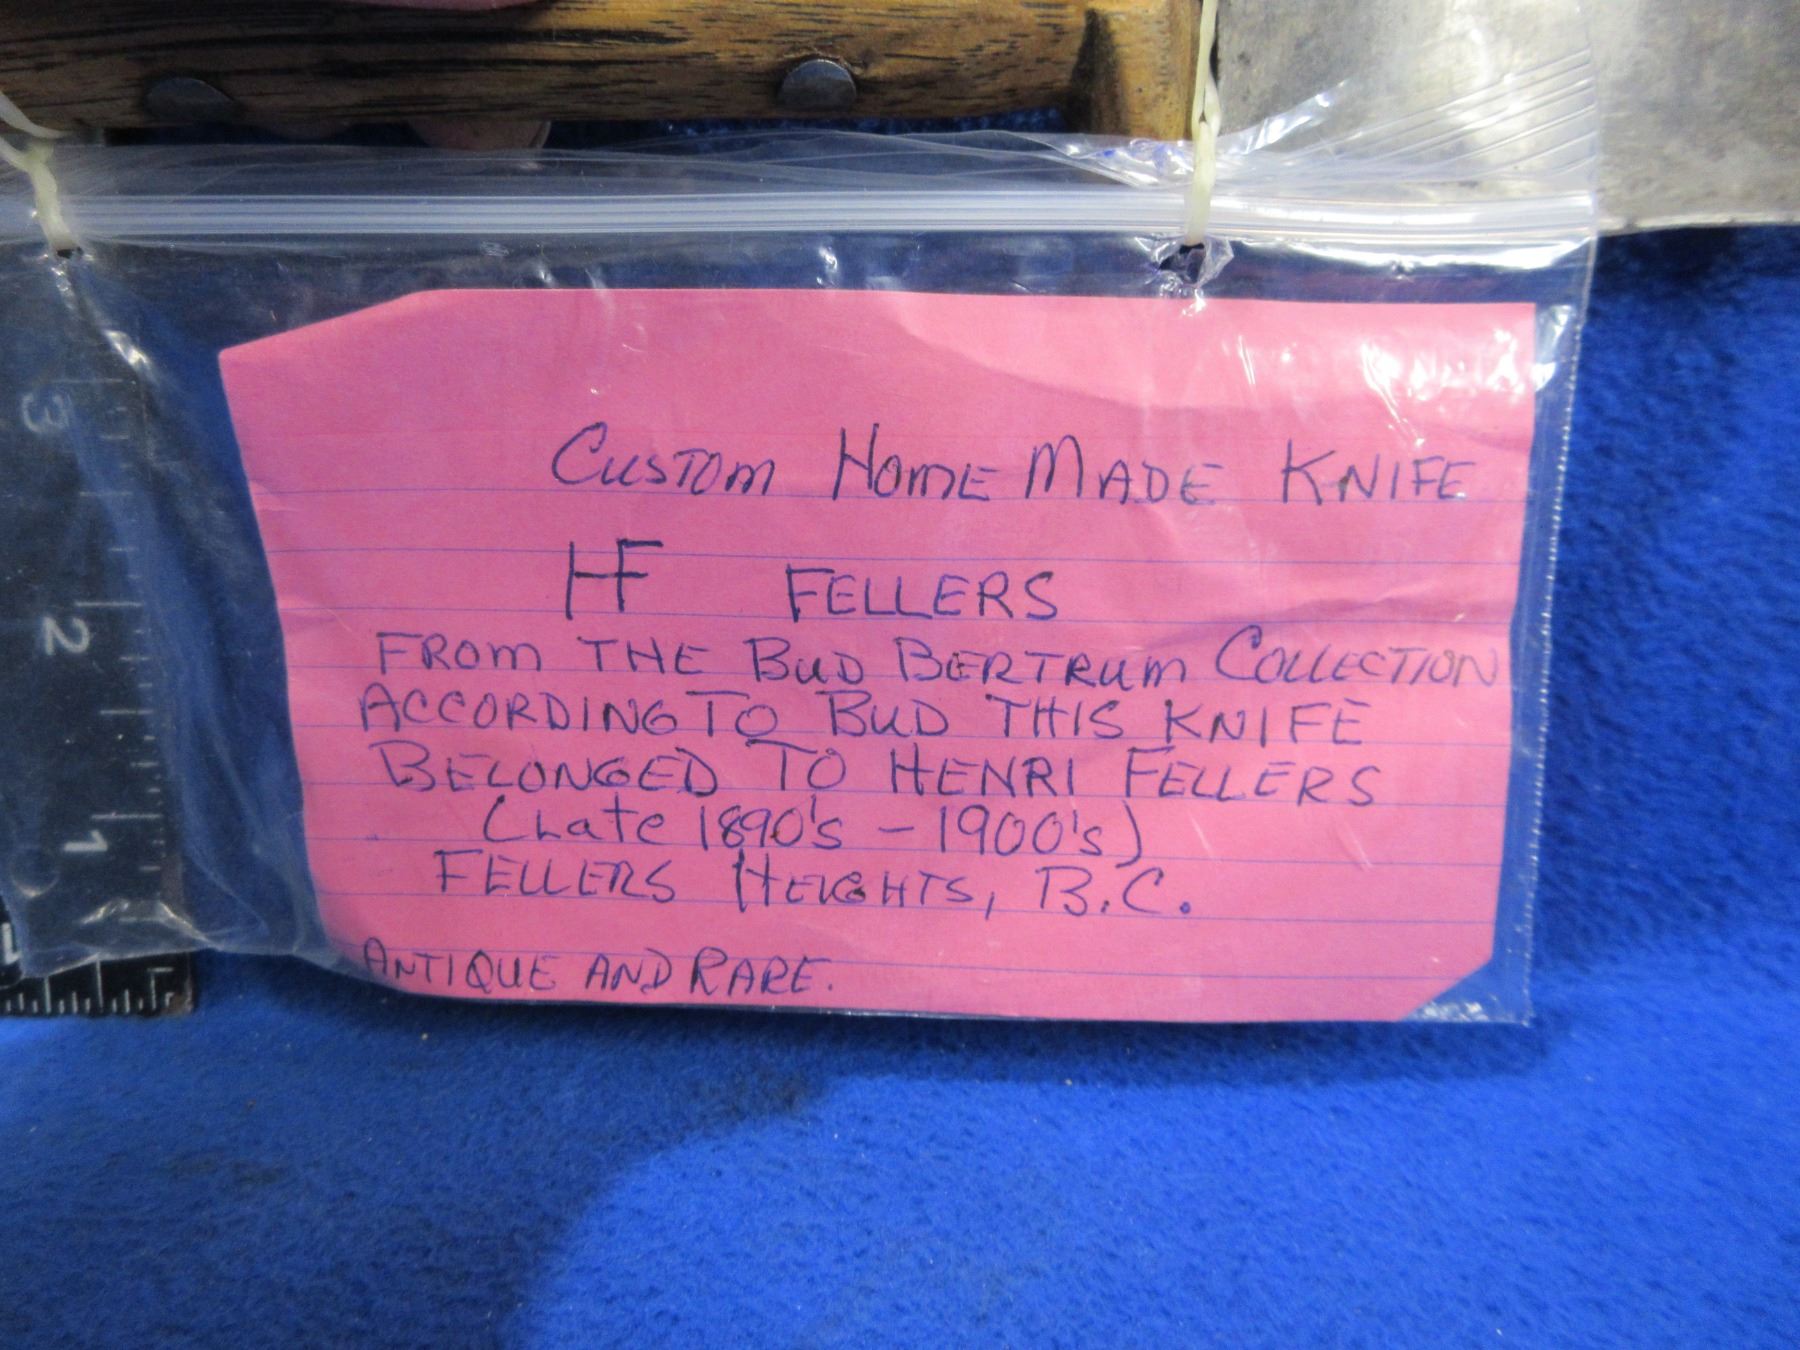 Custom Home Made Knife
HF Fellers
From the Bud Bertrum Collection
According to Bud this knife
belonged to Henri Fellers
(Late 1890's - 1900's)
Fellers Heights, B.C.
Antique and Rare.
3
2
1
1